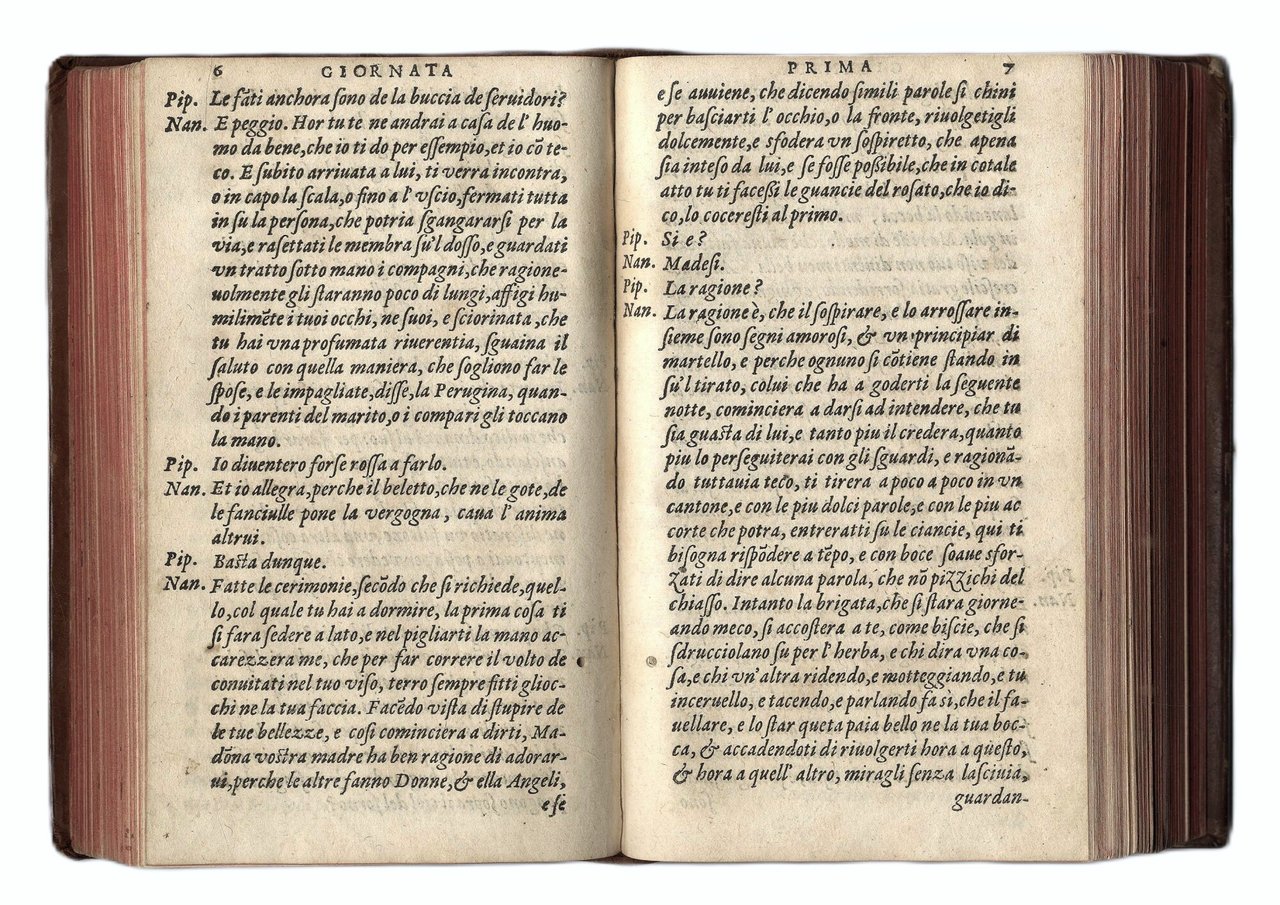 6 GIORNATA
Pip. Le fati anchora ſono de la buccia de ſeruidori?
Nan. E peggio. Hor tu te ne andrai a caſa de l' huo-
mo da bene, che io ti do per eſſempio, et io cō te-
co. E ſubito arriuata a lui, ti verra incontra,
o in capo la ſcala, o fino a l' vſcio, fermati tutta
in ſu la perſona, che potria ſgangararſi per la
via, e raſettati le membra ſu'l doſſo, e guardati
vn tratto ſotto mano i compagni, che ragione-
uolmente gli ſtaranno poco di lungi, affigi hu-
milimēte i tuoi occhi, ne ſuoi, e ſciorinata, che
tu hai vna profumata riuerentia, ſguaina il
ſaluto con quella maniera, che ſogliono far le
ſpoſe, e le impagliate, diſſe, la Perugina, quan-
do i parenti del marito, o i compari gli toccano
la mano.
Pip. Io diuentero forſe roſſa a farlo.
Nan. Et io allegra, perche il beletto, che ne le gote, de
le fanciulle pone la vergogna, caua l' anima
altrui.
Pip. Baſta dunque.
Nan. Fatte le cerimonie, ſecōdo che ſi richiede, quel-
lo, col quale tu hai a dormire, la prima coſa ti
ſi fara ſedere a lato, e nel pigliarti la mano ac-
carezzera me, che per far correre il volto de
conuitati nel tuo viſo, terro ſempre fitti glioc-
chi ne la tua faccia. Facēdo viſta di ſtupire de
le tue bellezze, e coſi cominciera a dirti, Ma-
dōna voſtra madre ha ben ragione di adorar-
ui, perche le altre fanno Donne, & ella Angeli,
e ſe
PRIMA 7
e ſe auuiene, che dicendo ſimili parole ſi chini
per baſciarti l' occhio, o la fronte, riuolgetigli
dolcemente, e sfodera vn ſoſpiretto, che apena
ſia inteſo da lui, e ſe foſſe poſſibile, che in cotale
atto tu ti faceſſi le guancie del roſato, che io di-
co, lo coceresti al primo.
Pip. Si e?
Nan. Madeſi.
Pip. La ragione?
Nan. La ragione è, che il ſoſpirare, e lo arroſſare in-
ſieme ſono ſegni amoroſi, & vn principiar di
martello, e perche ognuno ſi cōtiene stando in
ſu'l tirato, colui che ha a goderti la ſeguente
notte, cominciera a darſi ad intendere, che tu
ſia guaſta di lui, e tanto piu il credera, quanto
piu lo perſeguiterai con gli ſguardi, e ragionā-
do tuttauia teco, ti tirera a poco a poco in vn
cantone, e con le piu dolci parole, e con le piu ac
corte che potra, entreratti ſu le ciancie, qui ti
biſogna riſpōdere a tēpo, e con boce ſoaue sfor-
zati di dire alcuna parola, che nō pizzichi del
chiaſſo. Intanto la brigata, che ſi ſtara giorne-
ando meco, ſi accoſtera a te, come biſcie, che ſi
ſdrucciolano ſu per l' herba, e chi dira vna co-
ſa, e chi vn' altra ridendo, e motteggiando, e tu
inceruello, e tacendo, e parlando fa sì, che il fa-
uellare, e lo ſtar queta paia bello ne la tua boc-
ca, & accadendoti di riuolgerti hora a queſto,
& hora a quell' altro, miragli ſenza laſciuia,
guardan-